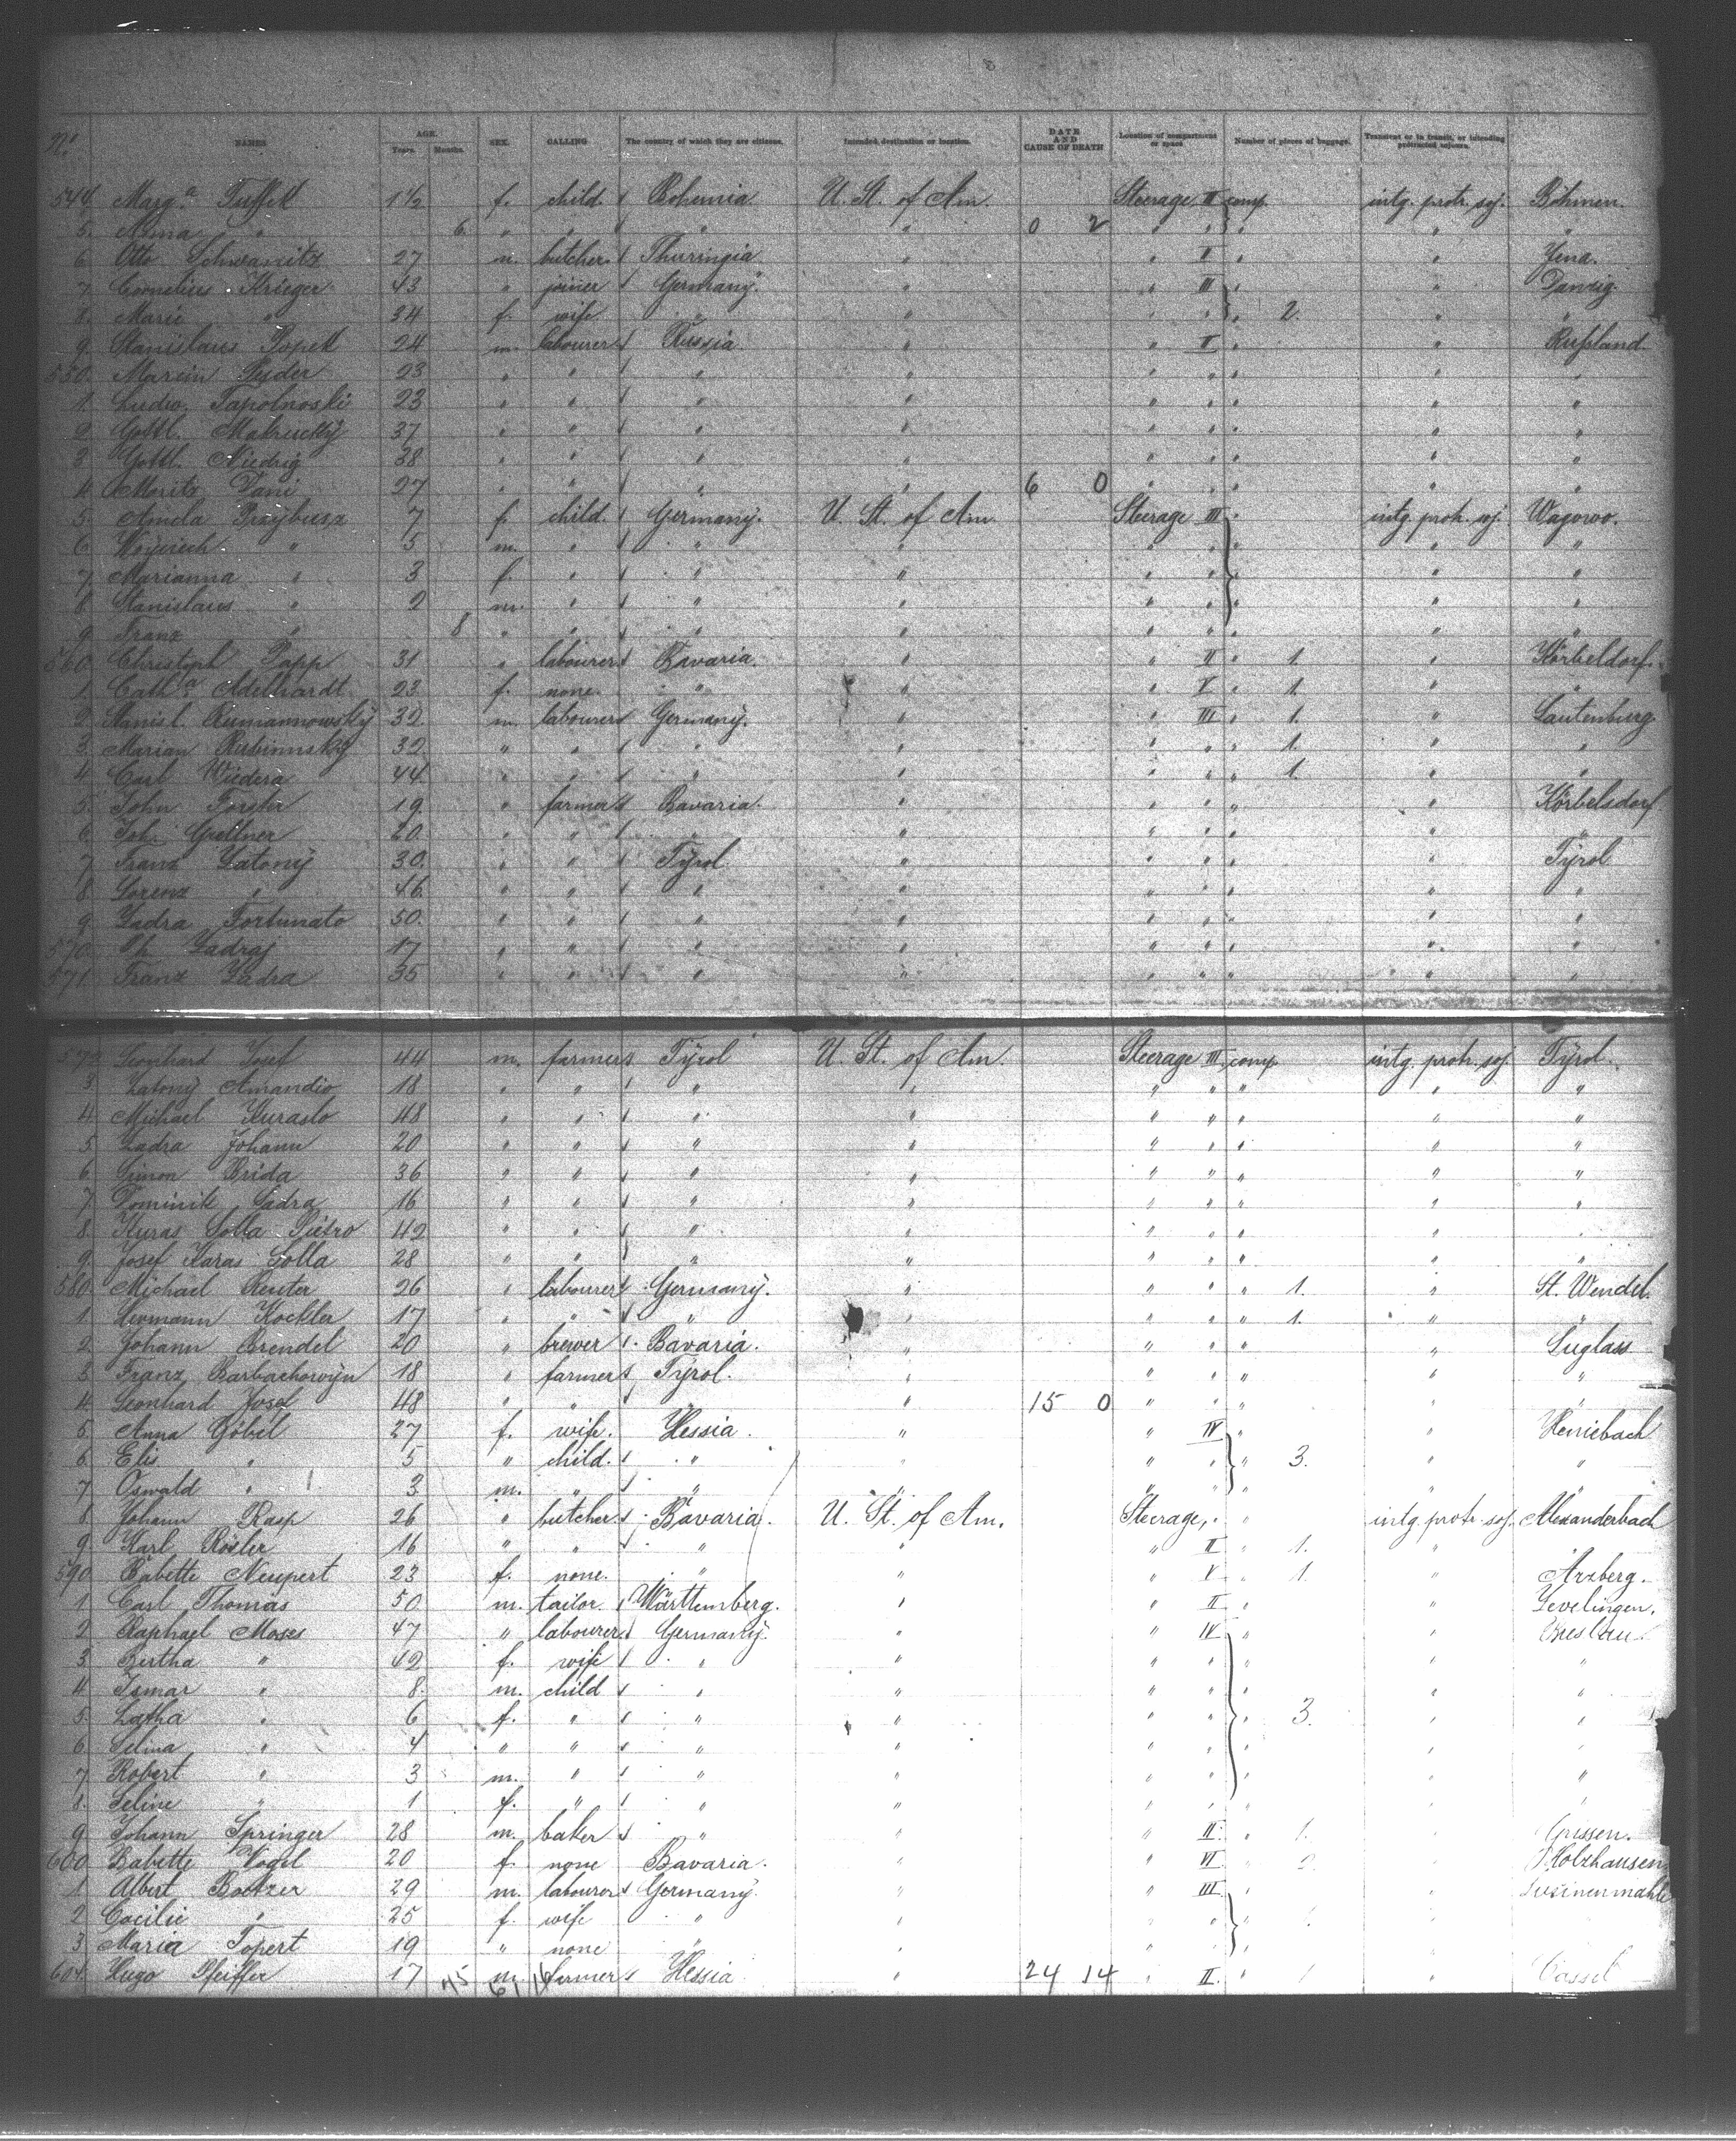 8
No. NAMES AGE. Years. Months. SEX. CALLING The country of which they are citizens. Intended destination or location. DATE AND CAUSE OF DEATH Location of compartment or space. Number of pieces of baggage. Transient or in transit, or intending protracted sojourn.
544 Marg.a Tuffek 1½ f. child. Bohemia U. St. of Am. Steerage II comp. intg. protr. soj. Böhmen.
5. Anna " 6 " " " " 0 2 " " " " "
6. Otto Schwanitz 27 m. butcher. Thurringia " " II " " Jena.
7. Cornelius Krieger 43 " joiner Germany. " " III " " Danzig.
8. Marie " 34 f. wife " " " " " 2. " "
9. Stanislaus Popek 24 m. labourer Russia " " II " " Rußland.
550. Marcin Tyder 23 " " " " " " " " "
1. Ludw. Tapolnoski 23 " " " " " " " " "
2. Gottl. Malrucky 37 " " " " " " " " "
3 Gottl. Niedrig 38 " " " " " " " " "
4. Moritz Dani 27 " " " " 6 0 " " " " "
5. Amela Przybusz 7 f. child. Germany. U. St. of Am. Steerage III " intg. protr. soj. Wagowo.
6. Woyciech " 5 m. " " " " " " " "
7. Marianna " 3 f. " " " " " " "
8 Stanislaus " 2 m. " " " " " " "
9. Franz " 8 " " " " " " " "
560. Christoph Papp 31 " labourer Bavaria. " " II " 1. " Körbeldorf.
1. Cath.a Adelhardt 23 f. none. " " " V " 1. " "
2. Stanisl. Rumannowsky 32 m. labourer Germany. " " III " 1. " Lautenburg.
3. Marian Rubinnsky 32 " " " " " " " 1. " "
4. Carl Wiedera 44 " " " " " " " 1. " "
5. John Forster 19 " farmer Bavaria. " " " " " Körbelsdorf
6. Joh. Grellner 20. " " " " " " " " "
7. Franz Zatony 30. " " Tyrol " " " " " Tyrol
8. Lorenz " 46. " " " " " " " " "
9. Zadra Fortunato 50. " " " " " " " " "
570. Th. Zadraj 17 " " " " " " " " "
571 Franz Zadra 35 " " " " " " " " "
572 Leonhard Josef 44 m. farmer Tyrol U. St. of Am. Steerage III comp. intg. protr. soj. Tyrol.
3. Zatony Amandio 18 " " " " " " " " "
4. Michael Kuraslo 48 " " " " " " " " "
5. Zadra Johann 20 " " " " " " " " "
6. Simon Brida 36 " " " " " " " " "
7. Dominik Zadra 16 " " " " " " " " "
8. Kuras Lolla Pietro 42 " " " " " " " " "
9. Josef Karas Lolla 28 " " " " " " " " "
580. Michael Reuter 26 " labourer Germany. " " " " 1. " St. Wendel.
1. Hermann Kockler 17 " " " " " " " 1. " "
2. Johann Brendel 20 " brewer Bavaria. " " " " "
3. Franz Barbachowyn 18 " farmer Tyrol. " " " " " "
4. Leonhard Josef 48 " " " " 15 0 " " " " "
5. Anna Göbel 27 f. wife. Hessia. " " IV " " Heriebach
6. Elis " 5 " child. " " " " " 3. " "
7. Oswald " 3 m. " " " " " " "
8. Johann Rasp 26 " butcher. Bavaria. U. St. of Am. Steerage, " " intg. protr. soj. Alexanderbach
9. Karl Rösler 16 " " " " " II " 1. "
590. Babette Neupert 23 f. none. " " " V " 1. " Arzberg.
1. Carl Thomas 50 m. tailor. Württemberg. " " II " " Levelingen.
2 Raphael Moses 47 " labourer Germany. " " IV " " Breslau.
3. Bertha " 42 f. wife " " " " " " "
4. Ismar " 8. m. child " " " " " " "
5. " 6 f. " " " " " " 3. " "
6. Selma " 4 " " " " " " " "
7. Robert " 3 m. " " " " " " "
8. Seline " 1 f. " " " " " " "
9. Johann Springer 28 m. baker " " " II. " 1. "
600. Babette Vogel 20 f. none Bavaria. " " VI " 2. " Holzhausen
1. Albert Boetzer 29 m. labourer Germany. " " III "
2. Cacilie " 25 f. wife " " " " "
3. Maria Topert 19 " none " " "
604. Hugo Pfeiffer 17 m. farmer Hessia " 24 14 " II. " " Cassel